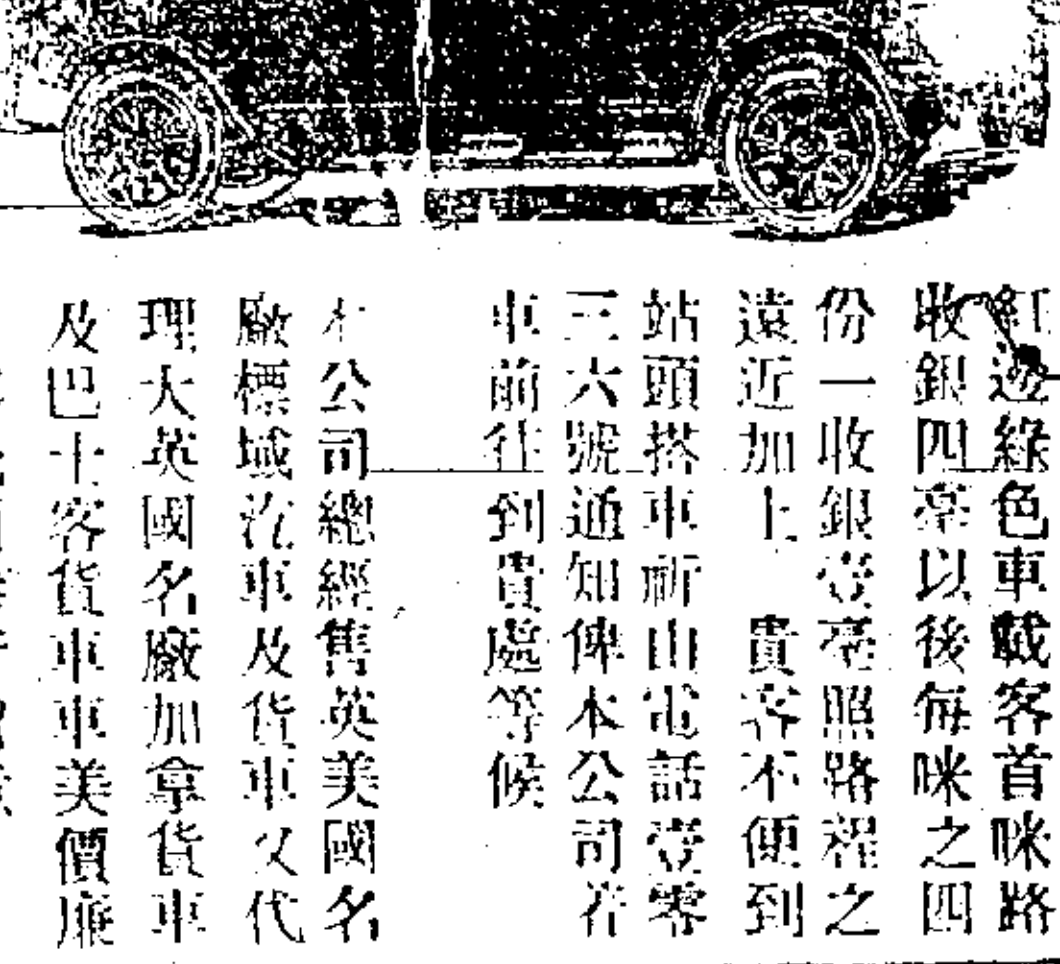 紅邊綠色車載客首咪路
收銀四毫以後每咪之四
份一收銀壹毫照路程之
遠近加上 貴客不便到
站頭搭車祈由電話壹零
三六號通知俾本公司着
車前往到貴處等候
本公司總經售英美國名
廠標域汽車及貨車又代
理大英國名廠加拿貨車
及巴士客貨車車美價廉